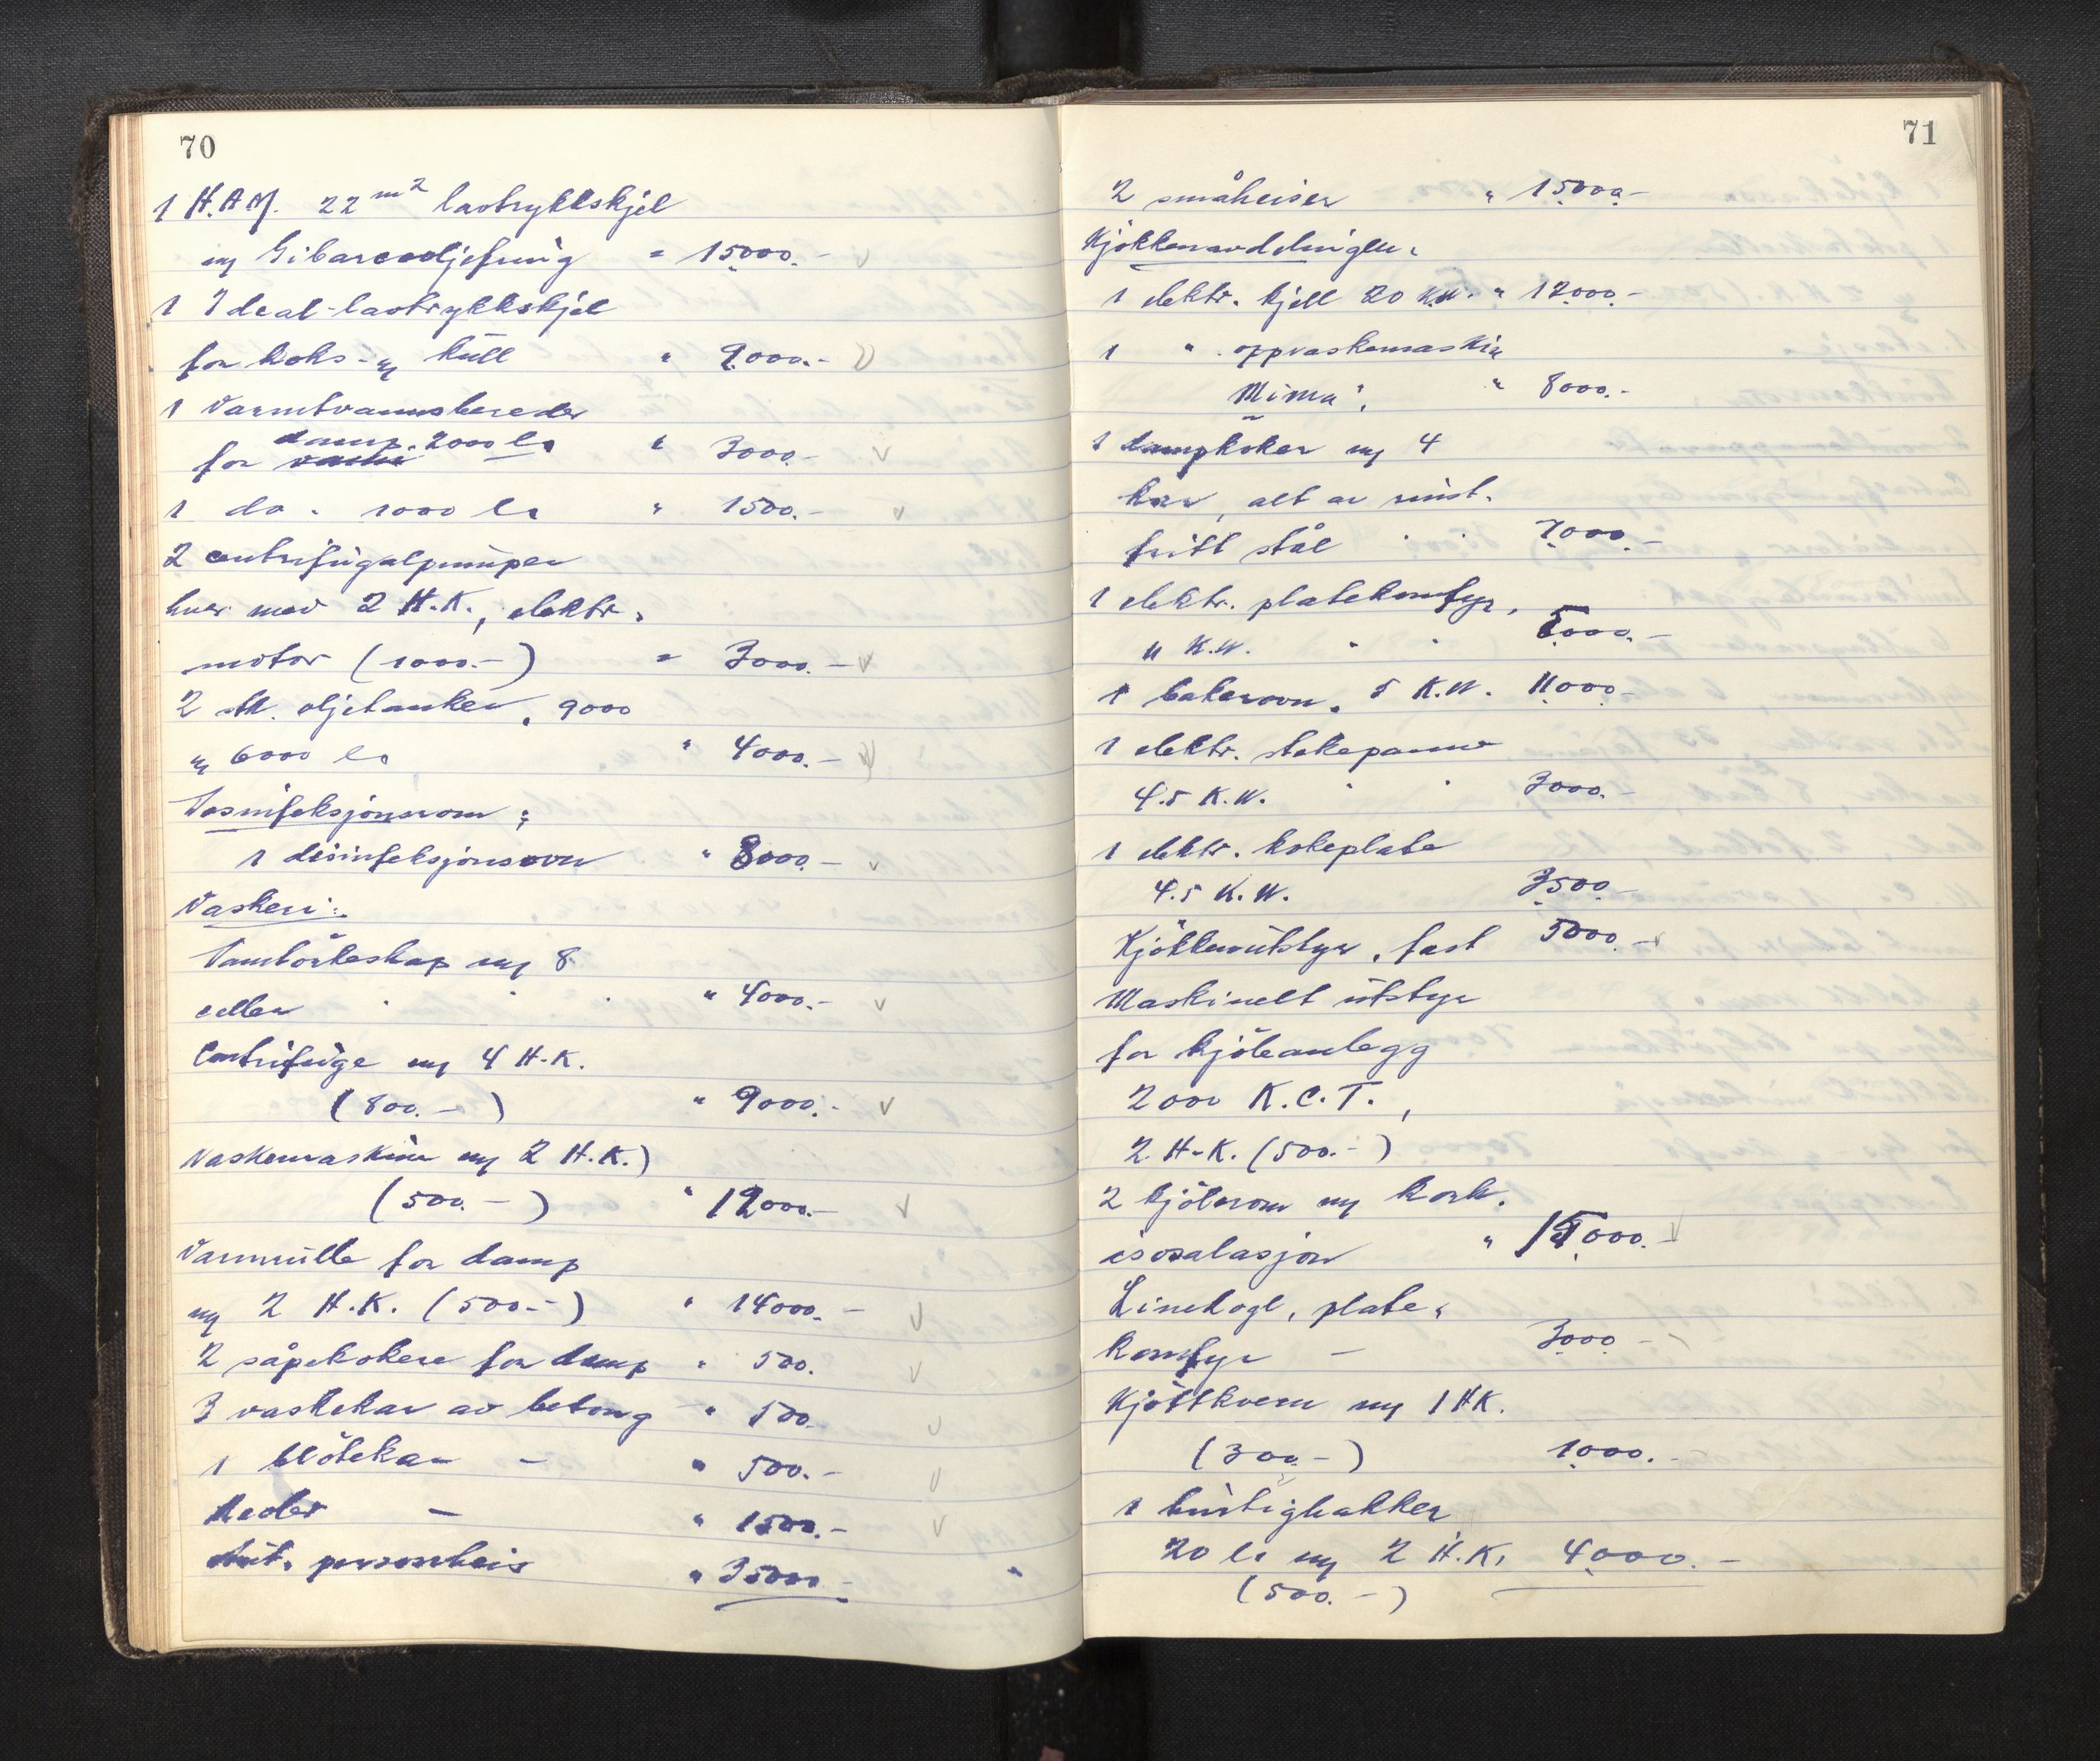 70
1 H.A.M. 22 m2 lavtrykkskjel
m/ Gibarcooljefyring " 15000.-
1 Ideal-lavtrykkskjel
for koks- og kull " 9000.-
1 Varmtvannsbereder
damp. 2000 l.
for " 3000.-
1 do. 1000 l. " 1500.-
2 centrifugalpumper
hver med 2 H.K., elektr.
motor (1000.-) " 3000.-
2 stk. oljetanker, 9000
og 6000 l. " 4000.-
Desinfeksjonsrom:
1 desinfeksjonsovn " 8000.-
Vaskeri:
Damtörkeskap m/ 8
celler " 4000.-
Centrifuge m/ 4 H.K.
(800.-) " 9000.-
Vaskemaskin m/ 2 H.K.)
(500.-) " 12000.-
Varmrulle for damp
m/ 2 H.K. (500.-) " 14000.-
2 såpekokere for damp " 500.
3 vaskekar av betong " 500.
1 blötekar - " 500.-
Reoler - " 1500.-
Aut. personheis " 35000.-
71
2 småheiser " 15000.-
Kjökkenavdelingen:
1 elektr. kjell 20 K.W. " 12000.-
1 " oppvaskemaskin
Mima". " 8000.-
1 dampkoker m/ 4
kar, alt av rust-
fritt stål 7000.-
1 elektr. platekomfyr,
11 K.W. 5000.-
1 bakerovn. 5 K.W. 11000.-
1 elektr. stekepanne
4.5 K.W. 3000.-
1 elektr. kokeplate
4.5 K.W. 3500.-
Kjökkenutstyr, fast 5000.-
Maskinelt utstyr
for kjöleanlegg
2000 K.C.T.,
2 H.K. (500.-)
2 kjölerom m/ kork-
isosalasjon " 15000.-
Linekogl, plate-
komfyr - 3000.-
Kjöttkvern m/ 1 HK.
(300.-) 1000.-
1 hurtighakker
20 l. m/ 2 H.K. 4000.-
(500.-)